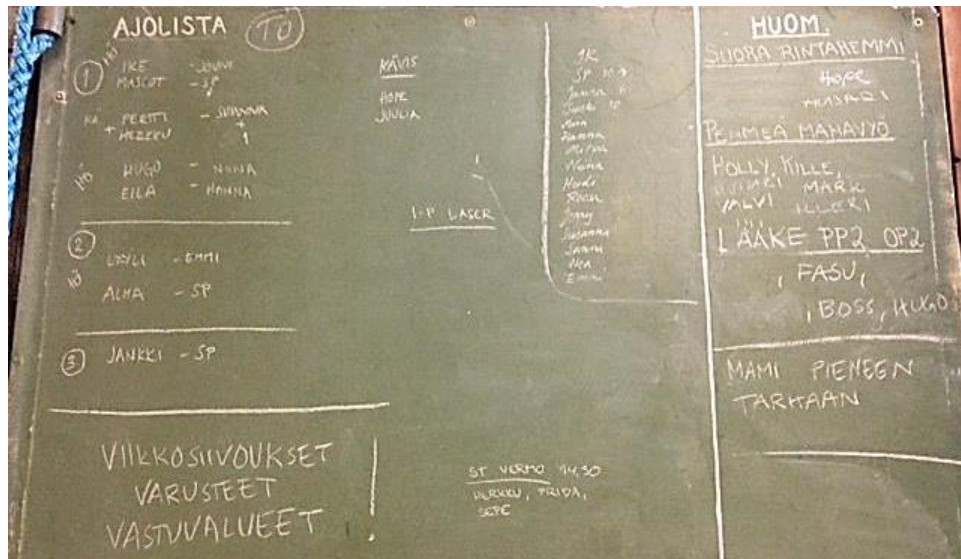 AJOLISTA TO
HÖ
1 IKE - JOUNI
MASCOT - SP
KÄ + PERTTI - SUSANNA
HERKKU + 1
HÖ HUGO - NIINA
EILA - HANNA
2
LYYLI - EMMI
HÖ
ALMA - SP
3 JANKKI - SP
VIIKKOSIIVOUKSET
VARUSTEET
VASTUUALUEET !
KÄVIS
HOPE
JUULIA
I-P LASER
ST VERMO 14,30
HERKKU, FRIDA,
SEPE
SP
Hanna
Niina
Heidi
Jenny
Susanna
Sanna
Emmi
HUOM.
SUORA RINTAHEMMI
HOPE
HUSARI
PEHMEÄ MAHAVYÖ
HOLLY, KILLE,
MARK
VALVI ILLERI
LÄÄKE PP2 OP2
, FASU,
, BOSS, HUGO
MAMI PIENEEN
TARHAAN